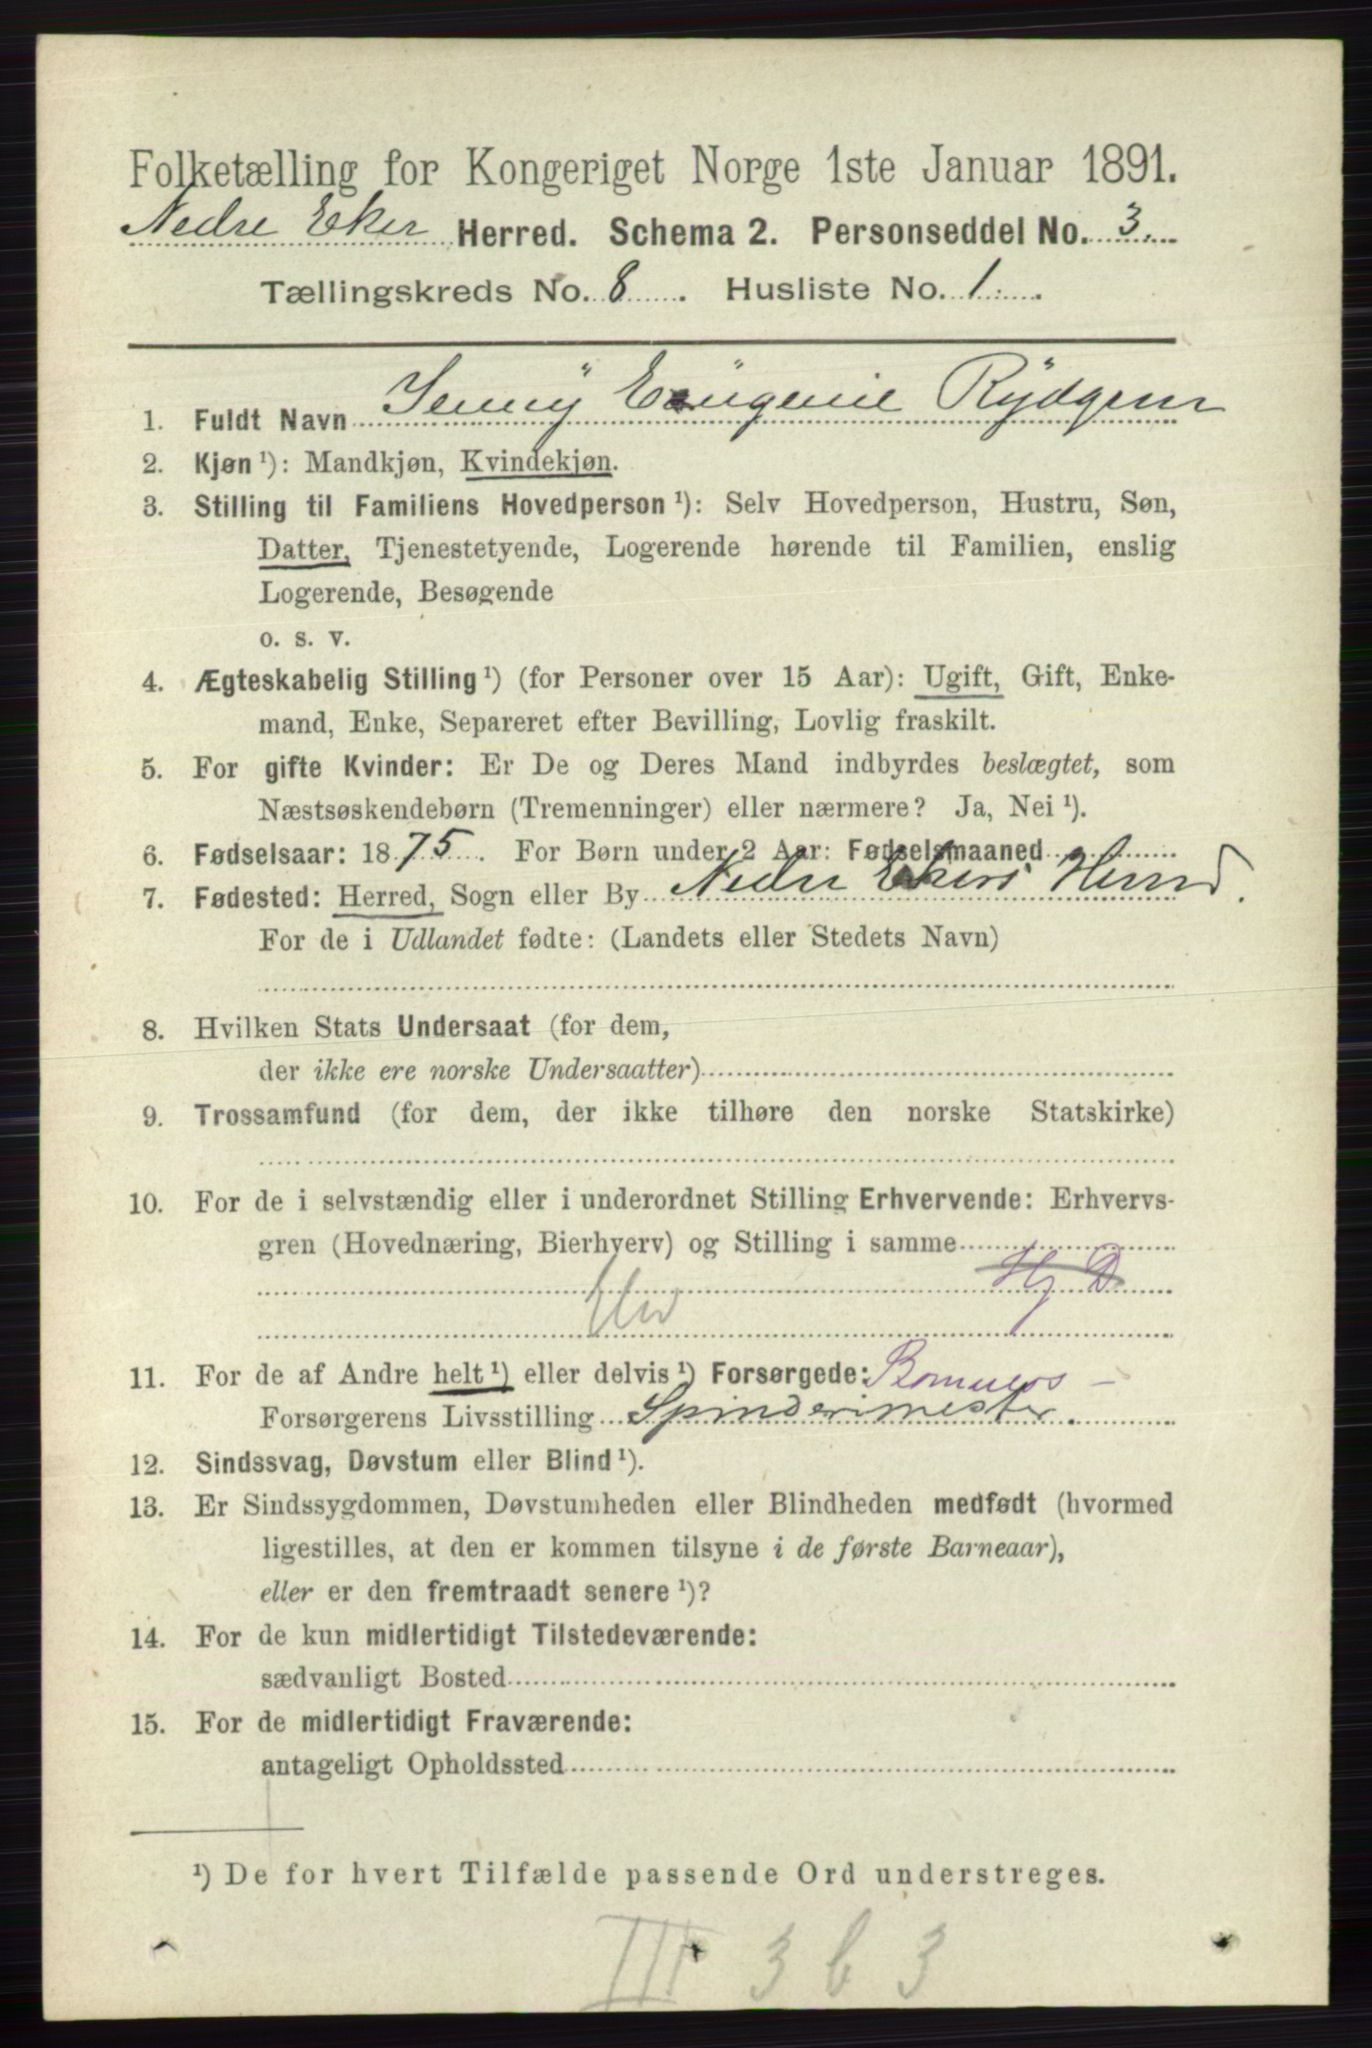 Folketælling for Kongeriget Norge 1ste Januar 1891.
Nedre Eker Herred. Schema 2. Personseddel No. 3.
Tællingskreds No. 8. Husliste No. 1.
1. Fuldt Navn Jenny Eugenie Rydgren
2. Kjøn ¹): Mandkjøn, Kvindekjøn.
3. Stilling til Familiens Hovedperson ¹): Selv Hovedperson, Hustru, Søn,
Datter, Tjenestetyende, Logerende hørende til Familien, enslig
Logerende, Besøgende
o. s. v.
4. Ægteskabelig Stilling ¹) (for Personer over 15 Aar): Ugift, Gift, Enke-
mand, Enke, Separeret efter Bevilling, Lovlig fraskilt.
5. For gifte Kvinder: Er De og Deres Mand indbyrdes beslægtet, som
Næstsøskendebørn (Tremenninger) eller nærmere? Ja, Nei ¹).
6. Fødselsaar: 1875. For Børn under 2 Aar: Fødselsmaaned
7. Fødested: Herred, Sogn eller By Nedre Ekers Herred.
For de i Udlandet fødte: (Landets eller Stedets Navn)
8. Hvilken Stats Undersaat (for dem,
der ikke ere norske Undersaatter)
9. Trossamfund (for dem, der ikke tilhøre den norske Statskirke)
10. For de i selvstændig eller i underordnet Stilling Erhvervende: Erhvervs-
gren (Hovednæring, Bierhverv) og Stilling i samme
Hj D
11. For de af Andre helt ¹) eller delvis ¹) Forsørgede: Bomulds-
Forsørgerens Livsstilling Spinderimester.
12. Sindssvag, Døvstum eller Blind ¹).
13. Er Sindssygdommen, Døvstumheden eller Blindheden medfødt (hvormed
ligestilles, at den er kommen tilsyne i de første Barneaar),
eller er den fremtraadt senere ¹)?
14. For de kun midlertidigt Tilstedeværende:
sædvanligt Bosted
15. For de midlertidigt Fraværende:
antageligt Opholdssted
¹) De for hvert Tilfælde passende Ord understreges.
III 3 b 3